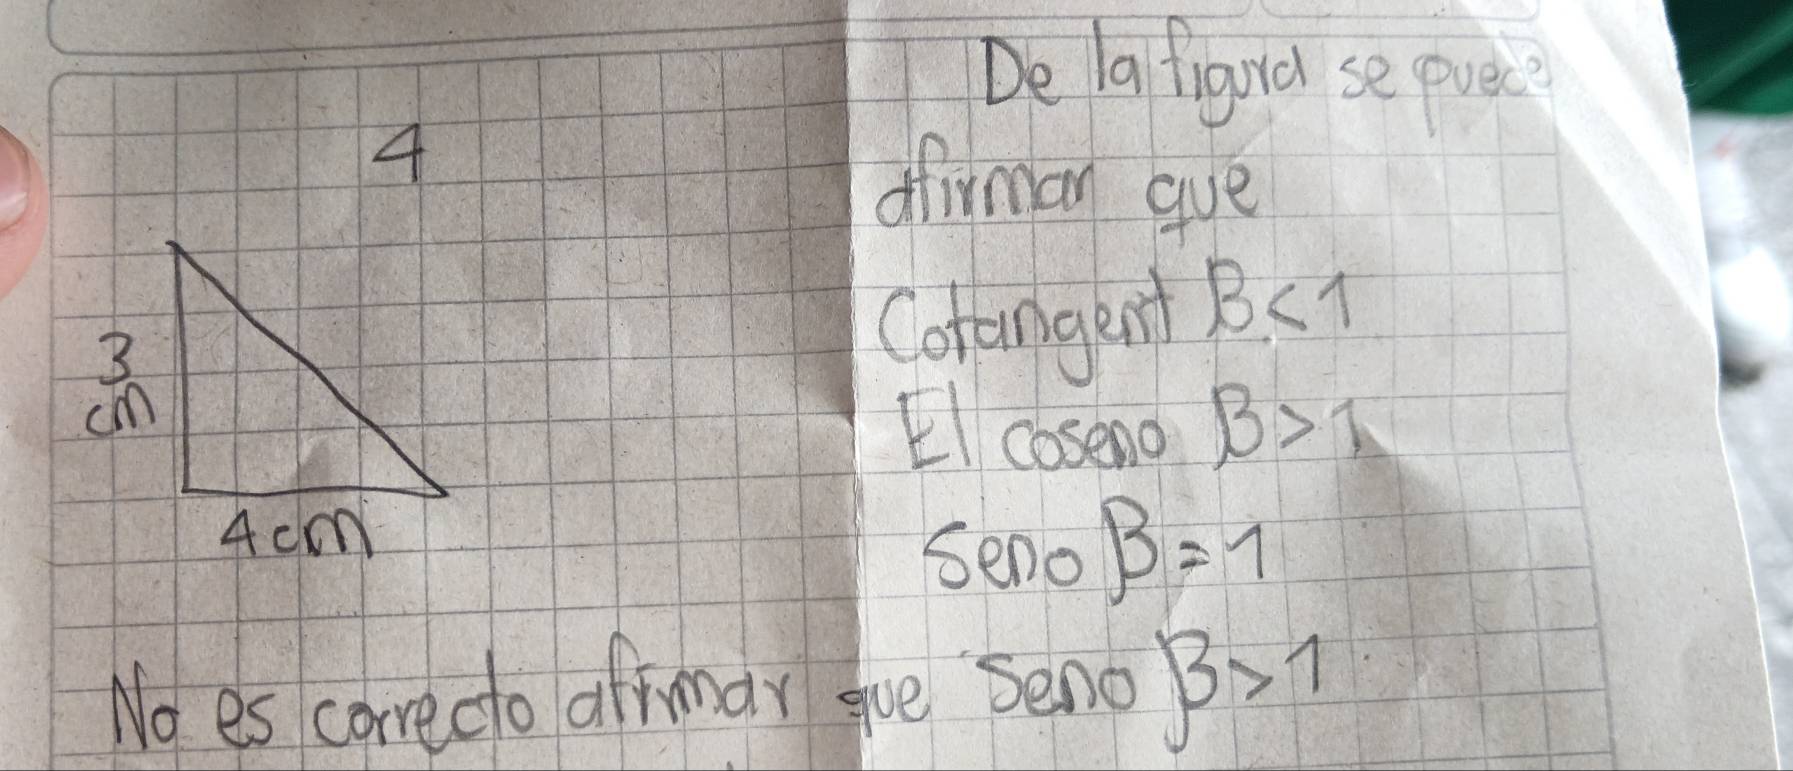 4
3
cm
4cm
De la figura se puede
afirmar que
Cotangent β < 1
El coseno β > 1
Seno β = 1
No es correcto afirmar que Seno β > 1